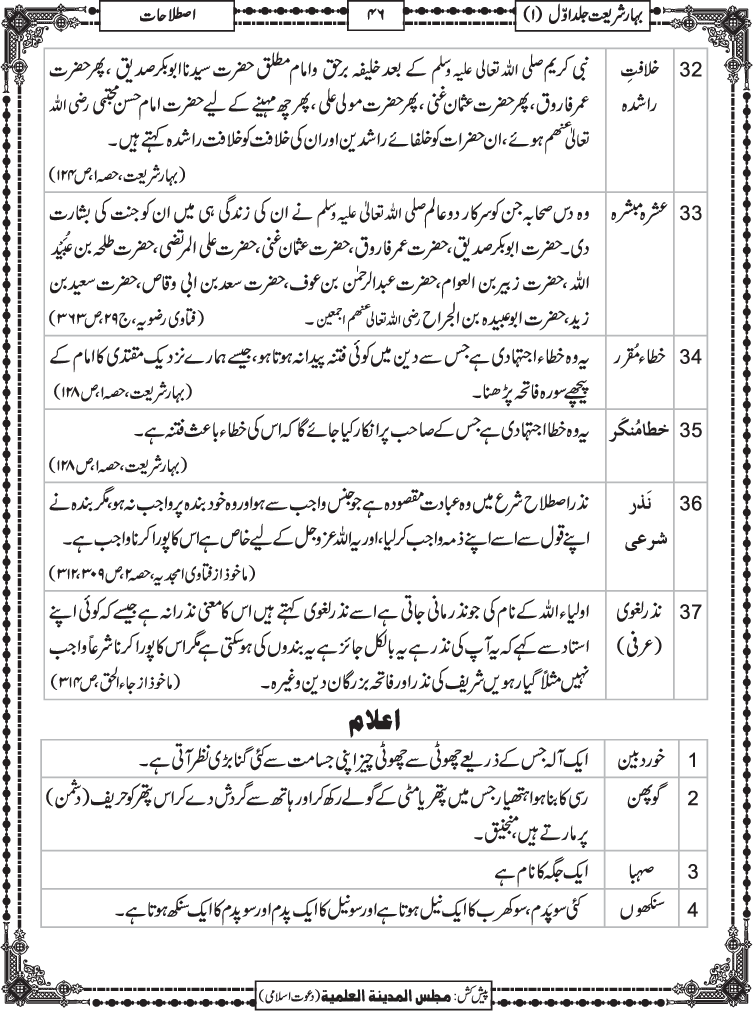 بہارِ شریعت جلد اوّل (۱)
۴۶
اصطلاحات
32 خلافتِ راشدہ
نبی کریم صلی اللہ تعالی علیہ وسلم کے بعد خلیفہ برحق وامام مطلق حضرت سیدنا ابوبکر صدیق ، پھر حضرت
عمر فاروق، پھر حضرت عثمان غنی ، پھر حضرت مولی علی ، پھر چھ مہینے کے لیے حضرت امام حسن مجتبی رضی اللہ
تعالیٰ عنھم ہوئے ، ان حضرات کو خلفائے راشدین اور ان کی خلافت کو خلافت راشدہ کہتے ہیں۔
(بہارِ شریعت، حصہ ۱، ص ۱۲۴)
33 عشرہ مبشرہ
وہ دس صحابہ جن کو سرکار دو عالم صلی اللہ تعالیٰ علیہ وسلم نے ان کی زندگی ہی میں ان کو جنت کی بشارت
دی۔ حضرت ابوبکر صدیق، حضرت عمر فاروق، حضرت عثمان غنی، حضرت علی المرتضی، حضرت طلحہ بن عُبَیْد
اللہ ، حضرت زبیر بن العوام، حضرت عبدالرحمٰن بن عوف، حضرت سعد بن ابی وقاص، حضرت سعید بن
زید، حضرت ابوعبیدہ بن الجراح رضی اللہ تعالیٰ عنھم اجمعین ۔ (فتاوی رضویہ، ج ۲۹، ص ۳۶۳)
34 خطاء مُقرر
یہ وہ خطاء اجتہادی ہے جس سے دین میں کوئی فتنہ پیدا نہ ہوتا ہو، جیسے ہمارے نزدیک مقتدی کا امام کے
پیچھے سورہ فاتحہ پڑھنا۔ (بہارِ شریعت، حصہ ۱، ص ۱۲۸)
35 خطا مُنکَر
یہ وہ خطا اجتہادی ہے جس کے صاحب پر انکار کیا جائے گا کہ اس کی خطاء باعث فتنہ ہے۔
(بہارِ شریعت، حصہ ۱، ص ۱۲۸)
36 نَذر شرعی
نذر اصطلاح شرع میں وہ عبادت مقصودہ ہے جو جنس واجب سے ہو اور وہ خود بندہ پر واجب نہ ہو، مگر بندہ نے
اپنے قول سے اسے اپنے ذمہ واجب کر لیا، اور یہ اللہ عزوجل کے لیے خاص ہے اس کا پورا کرنا واجب ہے۔
(ماخوذ از فتاوی امجدیہ، حصہ ۲، ص ۳۰۹، ۳۱۲)
37 نذر لغوی (عرفی)
اولیاء اللہ کے نام کی جو نذر مانی جاتی ہے اسے نذر لغوی کہتے ہیں اس کا معنی نذرانہ ہے جیسے کہ کوئی اپنے
استاد سے کہے کہ یہ آپ کی نذر ہے یہ بالکل جائز ہے یہ بندوں کی ہو سکتی ہے مگر اس کا پورا کرنا شرعاً واجب
نہیں مثلاً گیارہویں شریف کی نذر اور فاتحہ بزرگان دین وغیرہ۔ (ماخوذ از جاء الحق، ص ۳۱۴)
اعلام
1 خوردبین
ایک آلہ جس کے ذریعے چھوٹی سے چھوٹی چیز اپنی جسامت سے کئی گنا بڑی نظر آتی ہے۔
2 گوپھن
رسی کا بنا ہوا ہتھیار جس میں پتھر یا مٹی کے گولے رکھ کر اور ہاتھ سے گردش دے کر اس پتھر کو حریف (دشمن)
پر مارتے ہیں، منجنیق۔
3 صہبا
ایک جگہ کا نام ہے
4 سنکھوں
کئی سو پَدم، سو کھرب کا ایک نیل ہوتا ہے اور سو نیل کا ایک پدم اور سو پدم کا ایک سنکھ ہوتا ہے۔
پیش کش: مجلس المدينة العلمية (دعوت اسلامی)